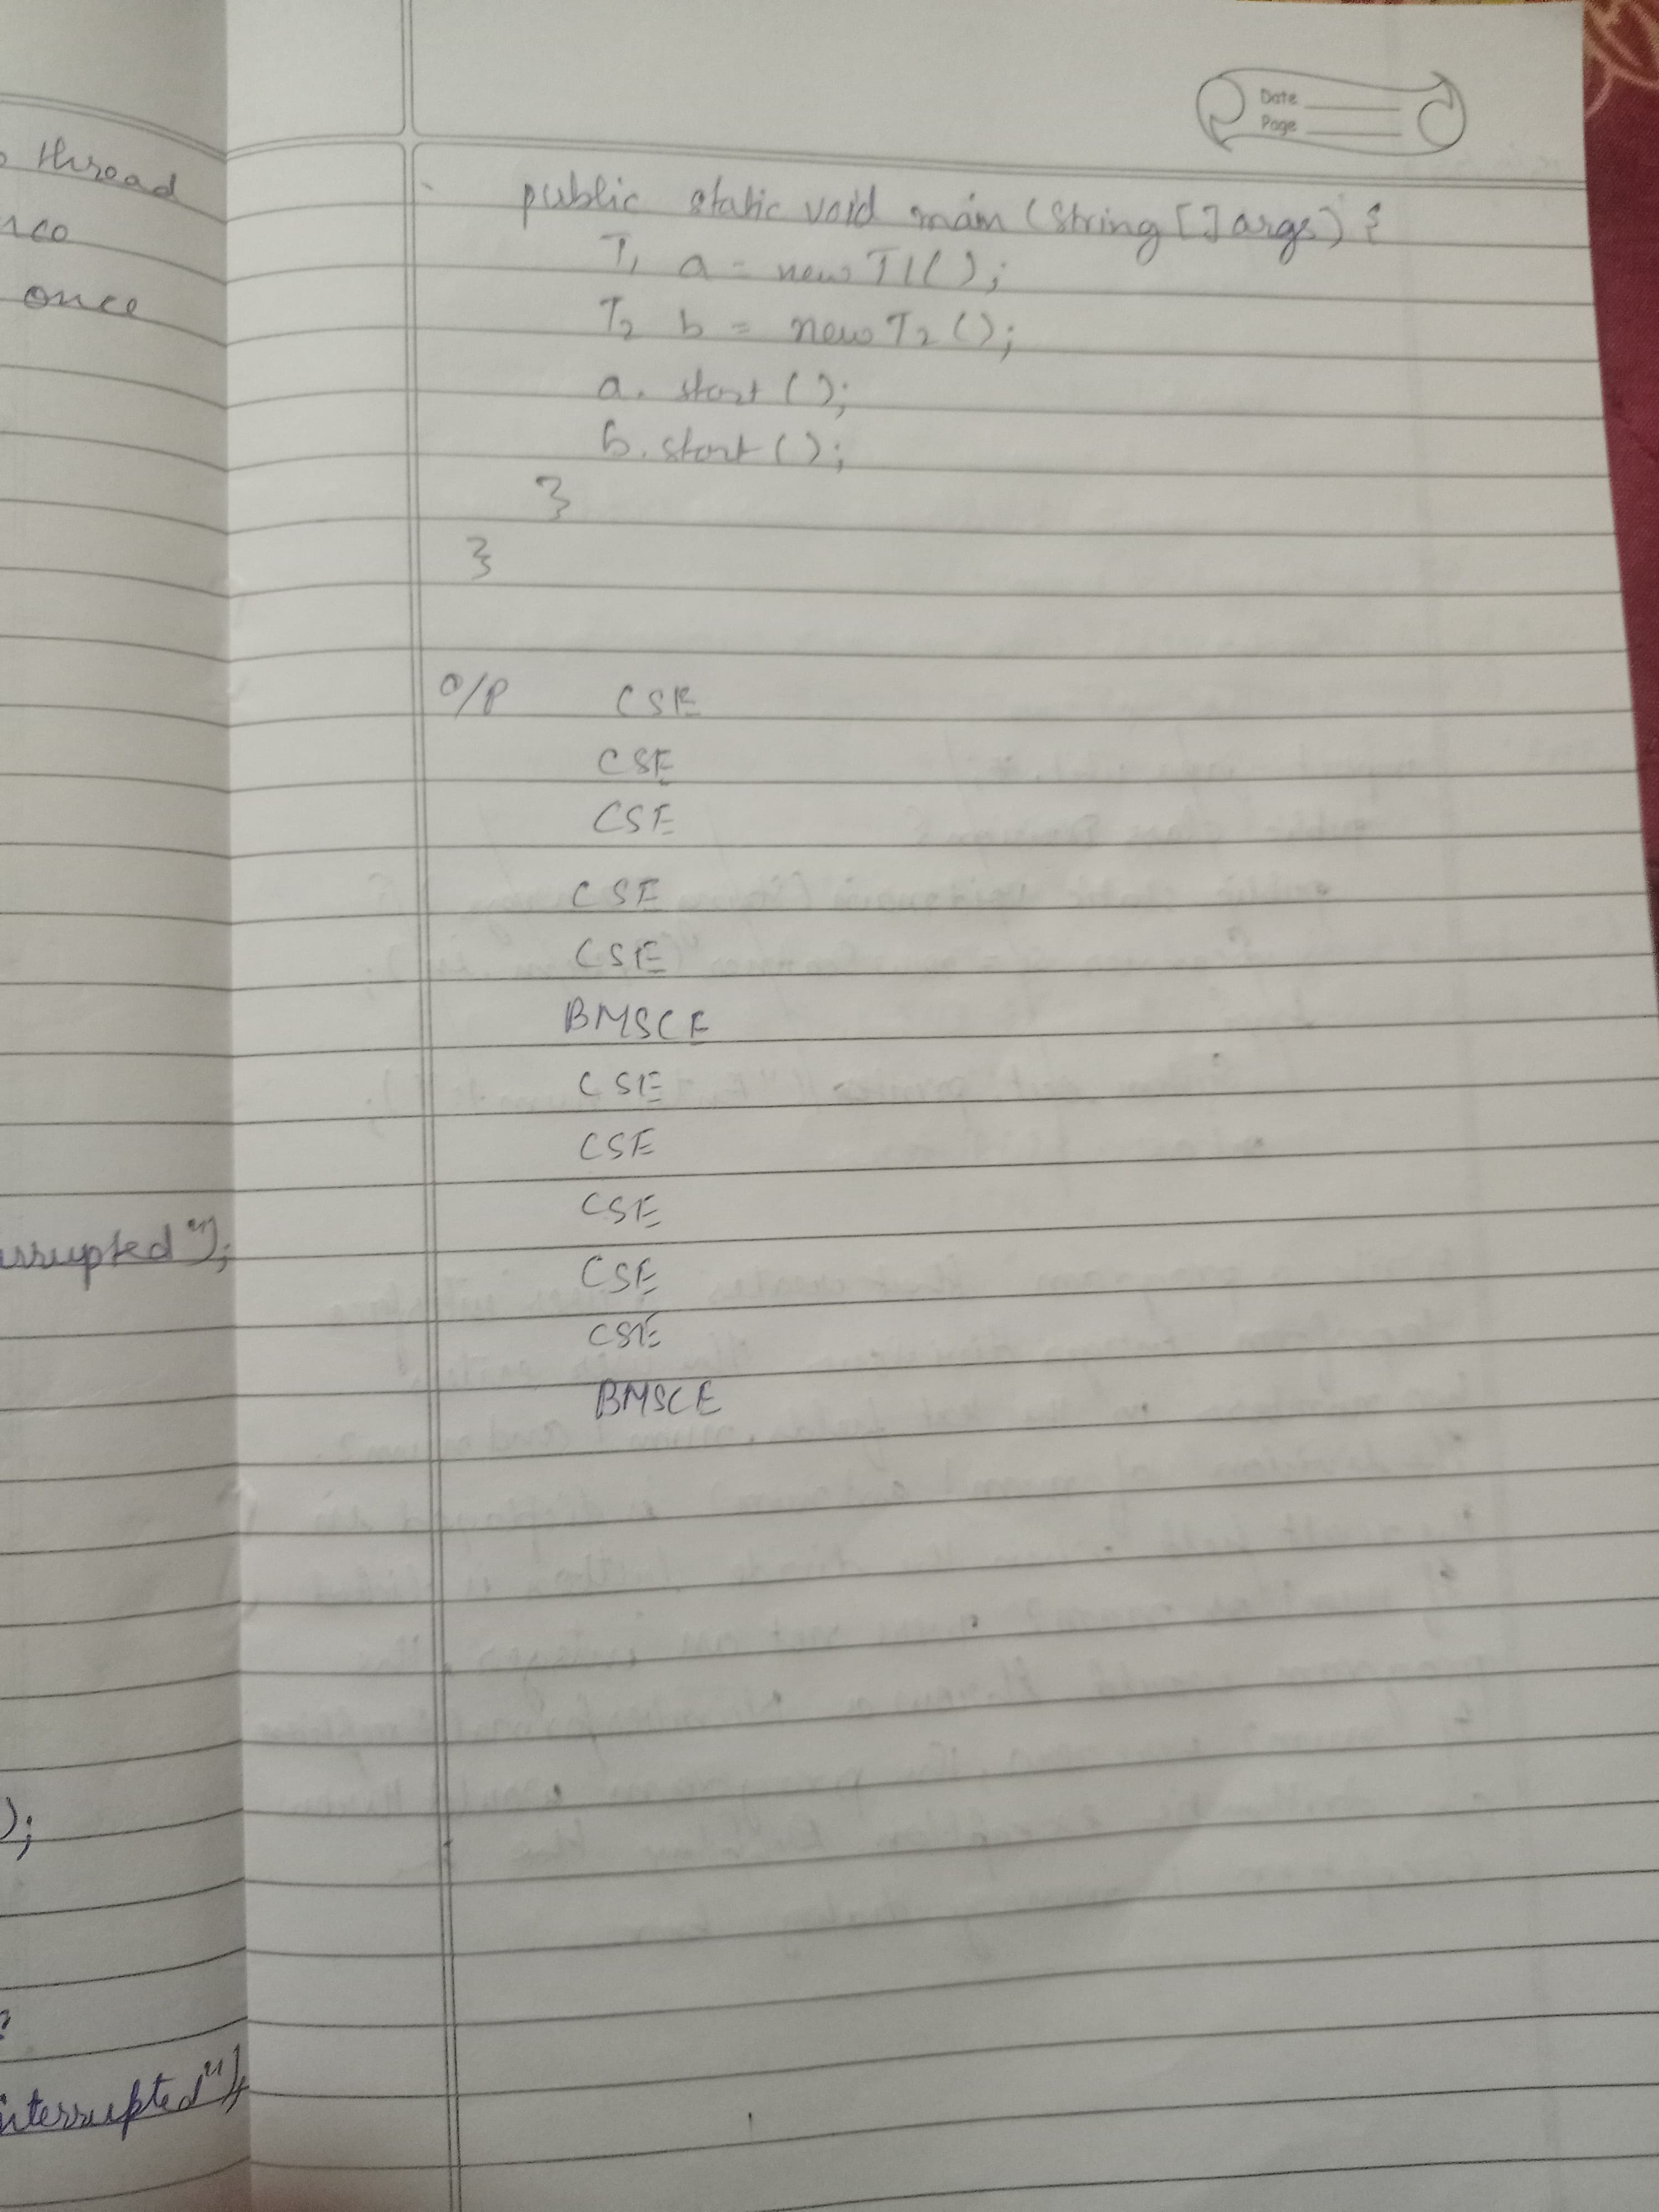 thread
nco
once
urrupted");
);
interrupted");
Date
Page
public static void main (String [] args) {
T1 a = new T1();
T2 b = new T2();
a. start ();
b. start ();
}
}
O/P CSE
CSE
CSE
CSE
CSE
BMSCE
CSE
CSE
CSE
CSE
CSE
BMSCE